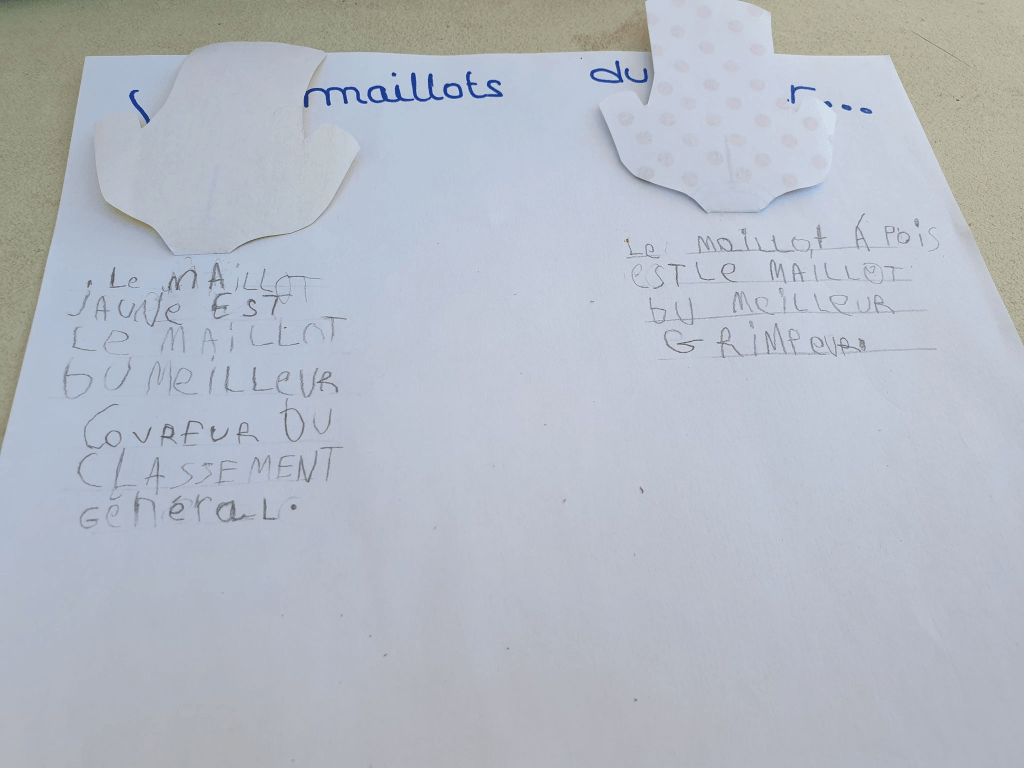 maillots du
r...
. Le MAiLLOT
JAUNe EST
Le MAiLLOT
DU MeiLLeUR
COUREUR DU
CLASSEMENT
Général.
Le maillot À POiS
eST Le MAILLOT
DU MeiLLeUR
GRiMPeUR.